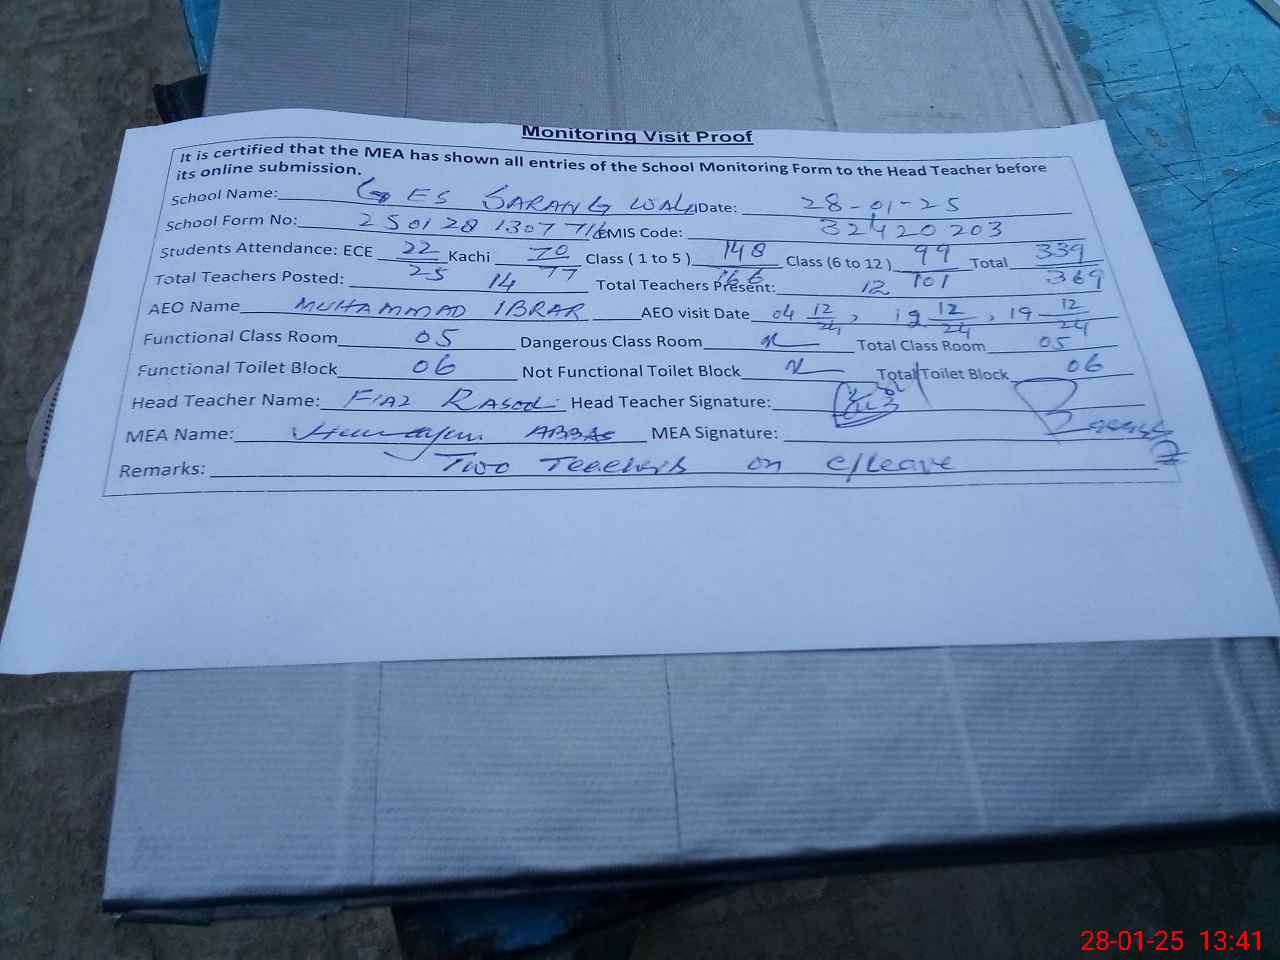 Monitoring Visit Proof
It is certified that the MEA has shown all entries of the School Monitoring Form to the Head Teacher before
its online submission.
School Name: G ES SARANG WALA Date: 28-01-25
School Form No: 250128 130771 EMIS Code: 32420203
Students Attendance: ECE 22/25 Kachi 70/77 Class ( 1 to 5 ) 148/166 Class (6 to 12 ) 99/101 Total 339/369
Total Teachers Posted: 14 Total Teachers Present: 12
AEO Name MUHAMMAD IBRAR AEO visit Date 04 12/24, 19 12/24, 19 12/24
Functional Class Room 05 Dangerous Class Room Total Class Room 05
Functional Toilet Block 06 Not Functional Toilet Block Total Toilet Block 06
Head Teacher Name: FIAZ RASOOL Head Teacher Signature:
MEA Name: Humayun ABBAS MEA Signature:
Remarks: Two Teachers on c/Leave
28-01-25 13:41